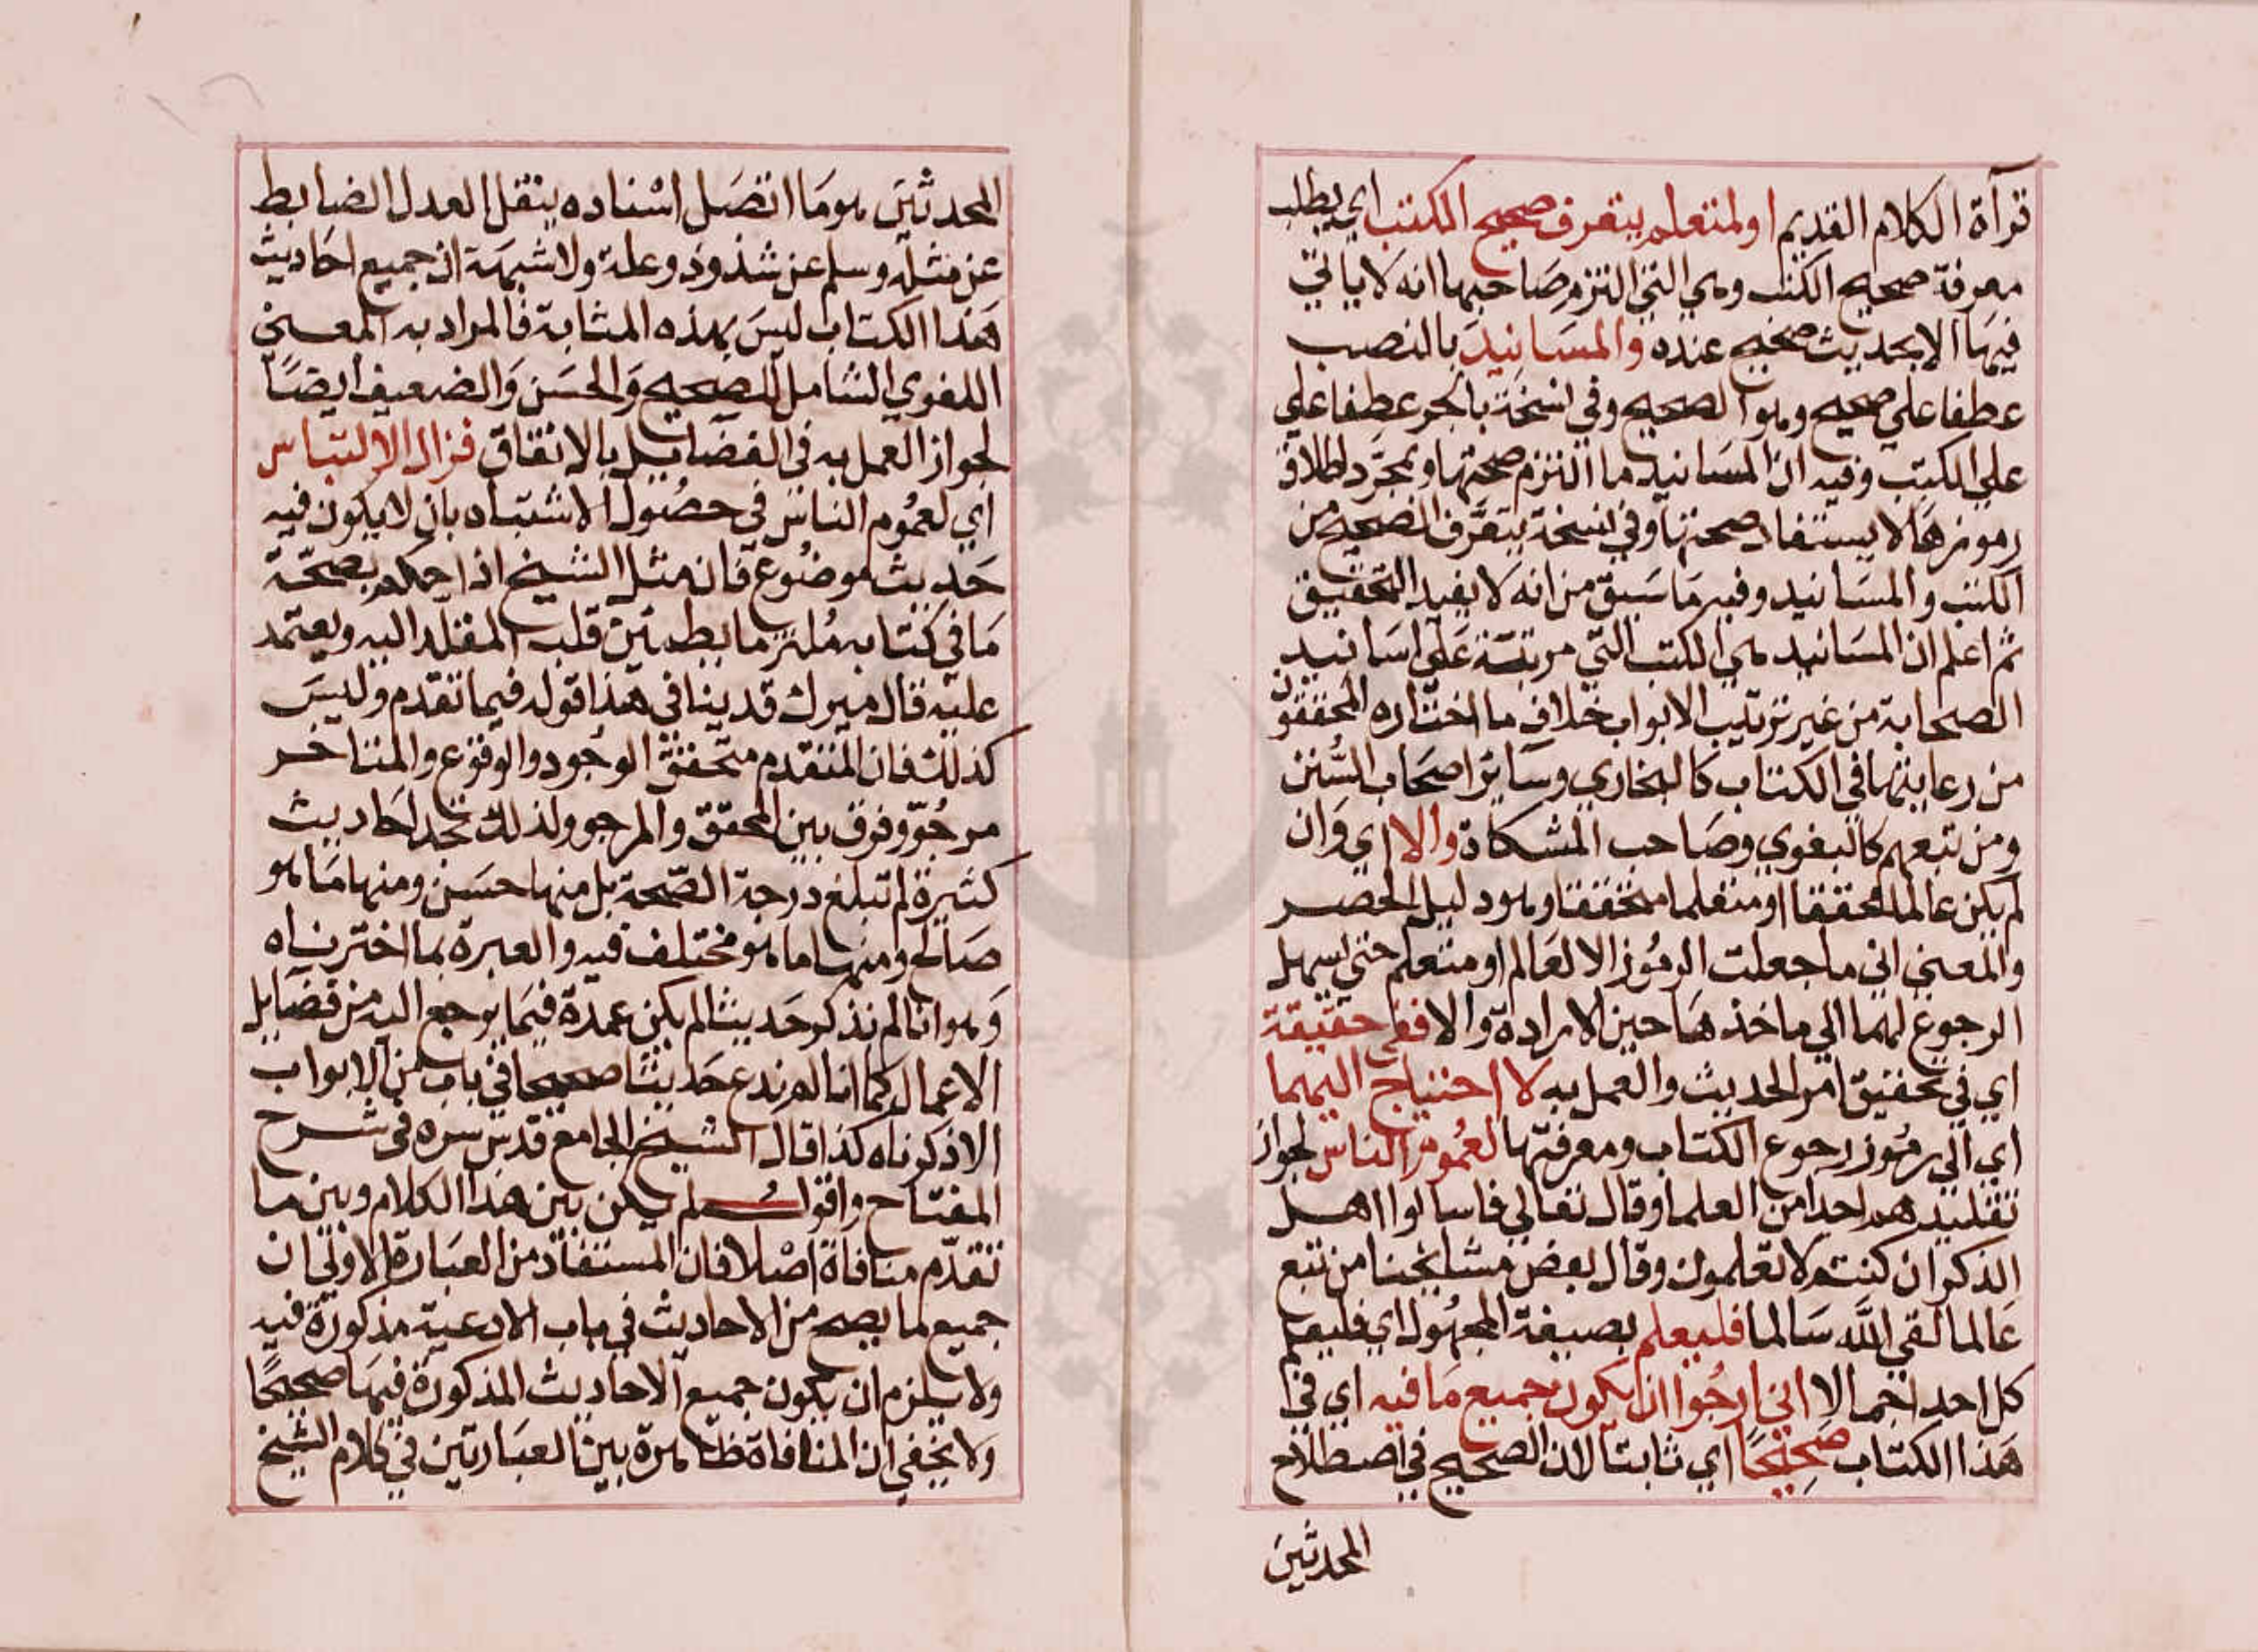 قرآة الكلام القديم او لمتعلم يتعرف صحيح الكتب اي يطلب
معرفة صحيح الكتب وهي التي التزم صاحبها انه لا ياتي
فيها الا بحديث صحيح عنده والمسانيد بالنصب
عطفا علي صحيح وهو الصحيح وفي نسخة بالجر عطفا علي
علي الكتب وفيه ان المسانيد ما التزم صحتها وبمجرد اطلاق
رموزها لا يستفاد صحتها وفي نسخة يتعرف الصحيح من
الكتب والمسانيد وفيه ما سبق من انه لا يفيد التحقيق
ثم اعلم ان المسانيد هي الكتب التي مرتبة علي اسانيد
الصحابة من غير ترتيب الابواب خلاف ما اختاره المحققون
من رعايتها في الكتاب كالبخاري وساير اصحاب السنن
ومن تبعهم كالبغوي وصاحب المشكاة والا اي وان
لم يكن عالما محققا او متعلما متحققا وهو دليل الحصر
والمعني اني ما جعلت الرموز الا لعالم او متعلم حتي يسهل
الرجوع لهما الي ماخذها حين الارادة والا ففي حقيقة
اي في تحقيق امر الحديث والعمل به لا احتياج اليهما
اي الي رموز رجوع الكتاب ومعرفتها لعموم الناس لجواز
تقليدهم احدا من العلما وقال تعالي فاسالوا اهل
الذكر ان كنتم لا تعلمون وقال بعض مشايخنا من تبع
عالما لقي الله سالما فليعلم بصيغة المجهول اي فليعلم
كل احد اجمالا اني ارجوا ان يكون جميع ما فيه اي في
هذا الكتاب صحيحا اي ثابتا لان الصحيح في اصطلاح
المحدثين
المحدثين هو ما اتصل اسناده بنقل العدل الضابط
عن مثله وسلم عن شذوذ وعلة ولا شبهة ان جميع احاديث
هذا الكتاب ليس بهذه المثابة فالمراد به المعني
اللغوي الشامل للصحيح والحسن والضعيف ايضا
لجواز العمل به في الفضايل بالاتفاق فزال الالتباس
اي لعموم الناس في حصول الاشتباه بان لا يكون فيه
حديث موضوع فان مثل الشيخ اذا حكم بصحة
ما في كتابه ملتزما يطمئن قلب المقلد اليه ويعتمد
عليه قال ميرك قد ينافي هذا قوله فيما تقدم وليس
كذلك فان المتقدم متحقق الوجود والوقوع والمتاخر
مرجو وفرق بين المحقق والمرجو ولذلك تجد احاديث
كثيرة لم تبلغ درجة الصحة بل منها حسن ومنها ما هو
صالح ومنها ما هو مختلف فيه والعبرة بما اخترناه
وهو انا لم نذكر حديثا لم يكن عمدة فيما يرجع اليه من فضايل
الاعمال كما انا لم ندع حديثا صحيحا في باب من الابواب
الا ذكرناه كذا قال الشيخ الجامع قدس سره في شرح
المفتاح واقول لم يكن بين هذا الكلام وبين ما
تقدم منافاة اصلا فان المستفاد من العبارة الاولي ان
جميع ما يصح من الاحاديث في باب الادعية مذكورة فيه
ولا يلزم ان يكون جميع الاحاديث المذكورة فيها صحيحا
ولا يخفي ان المنافاة ظاهرة بين العبارتين في كلام الشيخ